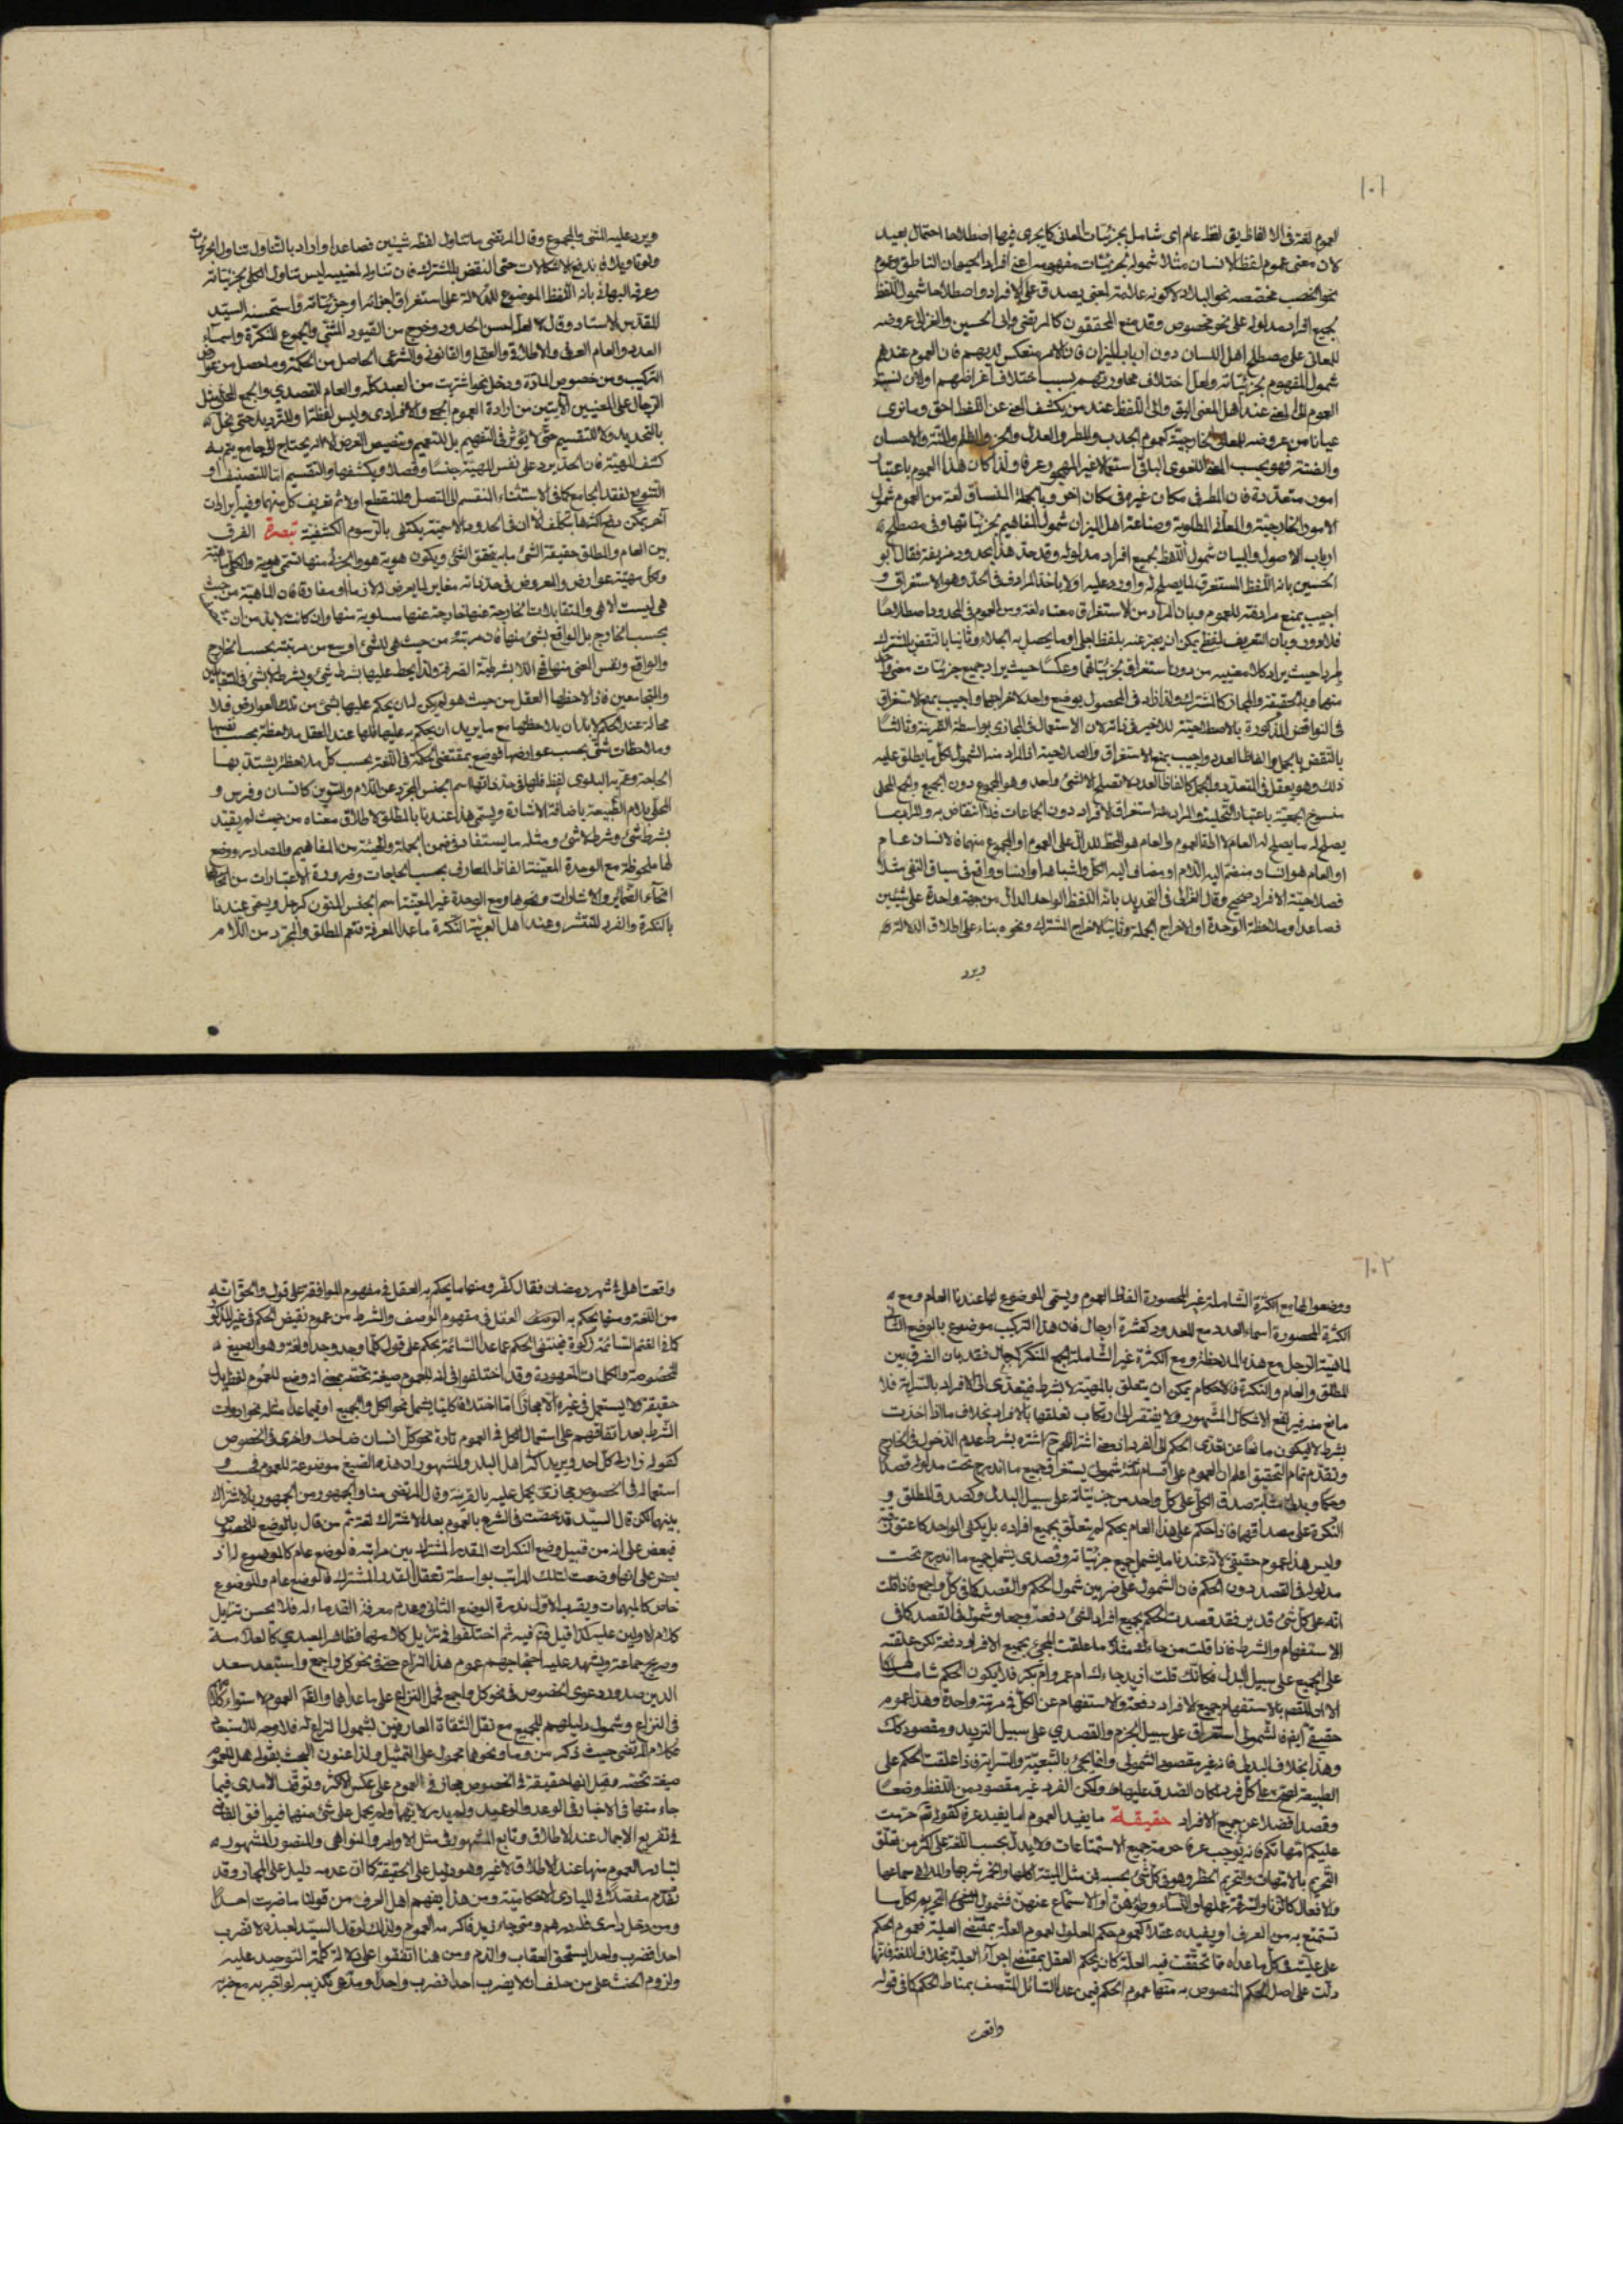 ١٠١
العموم لغة فى الالفاظ يق لفظ عام اى شامل بجزئيات المعانى كما يجرى فيها اصطلاحا احتمال بعيد
لان معنى عموم لفظ الانسان مثلا شموله لجزئيات مفهومه اعنى افراد الحيوان الناطق وعموم
نحو الخصب مخصصه نحو البلاد لا كونه علامة لمعنى يصدق على الافراد واصطلاحا شمول اللفظ
لجميع افراد مدلوله على نحو مخصوص وقد منع المحققون كالمرتضى وابى الحسين والغزالى عروضه
للمعانى على مصطلح اهل اللسان دون ارباب الميزان فان الامر منعكس لديهم فان العموم عندهم
شمول المفهوم بجزئياته ولعل اختلاف محاورتهم بسبب اختلاف اغراضهم اولان نسبة
العموم الى المعنى عند اهل المعنى اليق والى اللفظ عند من يكشف المعنى عن اللفظ احق وما نرى
عيانا من عروضه للمعانى الخارجية كعموم الجدب والمطر والعدل والظلم والاحسان
والفتنة فهو بحسب المعنى اللغوى الباقى استعمالا غير المهجور عرفا ولذا كان هذا العموم باعتبار
امور متعددة فان المطر فى مكان غيره فى مكان اخر وبالجملة المنساق لغة من العموم شمول
الامور الخارجية والمعانى المطلوبة وصناعة اهل الميزان شمول المفاهيم لجزئياتها وفى مصطلح
ارباب الاصول والبيان شمول اللفظ لجميع افراد مدلوله وقد حد هذا بحدود مزيفة فقال ابو
الحسين بانه اللفظ المستغرق لما يصلح له واورد عليه اولا باخذ المرادف فى الحد وهو الاستغراق و
اجيب بمنع مرادفته للعموم وبان المراد من الاستغراق معناه لغة ومن العموم فى المحدود اصطلاحا
فلا دور وبان التعريف لفظى يمكن ان يعبر عنه بلفظ اجلى او ما يحصل به الجلاء وثانيا بالنقض بالمشترك
طردا حيث يراد كلا معنييه من دون استغراق لجزئياتهما وعكسا حيث يراد جميع جزئيات معنى واحد
منهما وبالحقيقة والمجاز كالمشترك ولذا زاد فى المحصول بوضع واحد لاخراجهما واجيب بمنع الاستغراق
فى النواقض المذكورة بالاصطلاحية للاخير فى دائرة لان الاستعمال فى المجازى بواسطة القرينة وثالثا
بالنقض بالجمل والفاظ العدد واجيب بمنع الاستغراق والصلاحية اذ المراد منه الشمول لكل ما يطلق عليه
ذلك وهو يعقل فى المتعدد والجمل كالفاظ العدد لا تصلح الا لشئ واحد وهو المجموع دون الجميع والجمع المحلى
منسوخ الجمعية باعتبار التحلية والمراد هنا استغراق الافراد دون الجماعات فلا انتقاض به والمراد بما
يصلح له ما يصلح له العام لا اداة العموم والعام هو المحط للدال على العموم او المجموع منهما فالانسان عام
او العام هو انسان منضم اليه اللام او مضاف اليه الكل واشباهها وانسان واقع فى سياق النفى مثلا
فصلاحية الافراد صحيح وقال الغزالى فى التحديد بانه اللفظ الواحد الدال من جهة واحدة على شيئين
فصاعدا وملاحظة الوحدة اولا لاخراج الجملة وثانيا لاخراج المشترك ونحوه بناء على اطلاق الدلالة
ويرد
ويرد عليه المثنى والمجموع وقال المرتضى ما تناول لفظه شيئين فصاعدا واراد بالتناول تناول الجزئيات
وعرفه البهائى بانه اللفظ الموضوع للدلالة على استغراق اجزائه او جزئياته واستحسنه السيد
المقدس الاستاد وقال لا لعل احسن الحدود وخرج من القيود المثنى والجموع المنكرة واسماء
العدد والعام العرفى والاطلاق والعقلى والقانونى والشرعى الحاصل من الحكمة وما حصل من نحو
التركيب ومن خصوص المادة ودخل نحو اشتريت من العبد كله والعام القصدى والجمع المحلى مثل
الرجال على المعنيين الآيتين من ارادة العموم الجمعى والافرادى وليس لفظة او للترديد حتى يخل
بالتحديد ولا للتقسيم حتى لا يؤثر فى التفهيم بل للتعميم وتنصيص الغرض لانه لا يحتاج الى جامع يتم به
كشف المهية فان الحد يرد على نفس المهية جنسا وفصلا ويكشفها والتقسيم اما للتصنيف او
التنويع لفقد الجامع كما فى الاستثناء المنقسم الى المتصل والمنقطع اولا ثم تعريف كل منهما وفيه ايرادات
اخر يمكن دفع اكثرها بتكلف الا ان فى الحدود الاسمية يكتفى بالرسوم الكشفية تبصرة الفرق
بين العام والمطلق حقيقة الشئ ما به يتحقق الشئ ويكون هوية هو والجزئى منها تسمى هوية والكلى ماهية
ولكل مهية عوارض والمعروض فى حد ذاته مغاير لما يعرض له لازما او مفارقا فان الماهية من حيث
هى ليست الا هى والمتقابلات الخارجة عنها خارجة عنها مسلوبة منها وان كانت لا بد من ان
بحسب الخارج بل الواقع لشئ منها فان مرتبته من حيث هى للشئ اوسع من مرتبته بحسب الخارج
والواقع ونفس المعنى منها فى اللا بشرطية الصرفة ولذا يحط عليها بشرط شئ وبشرط لا شئ
والمتجامعين فاذا لاحظها العقل من حيث هو لم يكن لان يحكم عليها بشئ من تلك العوارض فلا
محالة عند الحكم لا بد ان يلاحظها مع ما يريد ان يحكم به عليها فلها عند العقل ملاحظة بحسب نفسها
وملاحظات شتى بحسب عوارضها فوضع بمقتضى الحكمة فى اللغة بحسب كل ملاحظة يشتد بها
الحاجة وتعم به البلوى لفظ فلها فى حد ذاتها اسم الجنس المجرد عن اللام والتنوين كانسان وفرس و
المحلى بلام الطبيعة باضافة الاشارة ويسمى هذا عندنا بالمطلق لاطلاق معناه من حيث لم يقيد
بشرط شئ وشرط لا شئ ومثله ما يستفاد فى ضمن الجملة والهيئة من المفاهيم والمصادر ووضع
لها ملحوظة مع الوحدة المعينة الفاظ المعارف بحسب الحاجات وضرورة الاعتبارات من
انحاء الضمائر والاشارات ونحوها ومع الوحدة غير المعينة اسم الجنس المنون كرجل ويسمى عندنا
بالنكرة والفرد المنتشر وعند اهل العربية النكرة ماعدا المعرفة فتعم المطلق والمجرد من اللام
١٠٢
ووضعوا لها مع الكثرة الشاملة غير المحصورة الفاظ العموم ويسمى الموضوع لها عندنا العام ومع
الكثرة المحصورة اسماء العدد مع المعدود كعشرة ارجال فان هذا التركيب موضوع بالوضع الثانى
لماهية الرجل مع هذه الملاحظة ومع الكثرة غير الشاملة الجمع المنكر كرجال فقد بان الفرق بين
المطلق والعام والنكرة فالاحكام يمكن ان يتعلق بالمهية لا بشرط فيتعدى الى الافراد بالسراية فلا
مانع منه فيرتفع الاشكال المشهور ولا يفتقر الى ارتكاب تعلقها بالافراد بخلاف ما اذا اخذت
بشرط لا فيكون مانعا عن تعدى الحكم الى الفرد بشرط عدم الدخول فى الخارج
وتقدم تمام التحقيق اعلم ان العموم على اقسام ثلثة شمولى يستغرق جميع ما اندرج تحت مدلوله قصدا
وحكما وبدلى مثابته صدق الكلى على كل واحد من جزئياته على سبيل البدل وكصدق المطلق و
النكرة على مصداقهما فاذا حكم على هذا العام بحكم لم يتعلق بجميع افراده بل يكفى الواحد كاعتق رقبة
وليس هذا بعموم حقيقى لانه عندنا ما يشمل جميع جزئياته وقصدى يشمل جميع ما اندرج تحت
مدلوله فى القصد دون الحكم فان الشمول على ضربين شمول الحكم والقصد كما فى كل واجمع فاذا قلت
انه على كل شئ قدير فقد قصدت الحكم بجميع افراد الشئ دفعة وجمعا وشمول فى القصد كما فى
الاستفهام والشرط فاذا قلت من جاءك مثلا ما علقت المجئ بجميع الافراد دفعة لكن علقته
على الجميع على سبيل البدل فكانك قلت ازيد جاءك ام عمرو ام بكر فلا يكون الحكم شاملا
الا ان المقصد بالاستفهام جميع الافراد دفعة والاستفهام عن الكل فى مرتبة واحدة وهذا عموم
حقيقى ايضا فالشمولى استغراق على سبيل الجزم والقصدى على سبيل الترديد ومقصود كك
وهذا بخلاف البدلى فانه غير مقصود الشمولى وانما يجئ بالتبعية والسراية فاذا علقت الحكم على
الطبيعة على كل فرد لمكان الصدق عليها ولكن الفرد غير مقصود من اللفظ وضعا
وقصدا فضلا عن جميع الافراد حقيقة ما يفيد العموم اما يفيد عرفا كقوله تع حرمت
عليكم امهاتكم فانه يوجب عرفا حرمة جميع الاستمتاعات ولا يدل بحسب اللغة على اكثر من تعلق
التحريم بالامهات والتحريم الحظر وهو فى كل شئ بحسبه فى مثل الميتة اكلها والخمر شربها والملاهى سماعها
والافعال كالزنا والسرقة عملها والنساء وطؤهن او الاستمتاع عنهن فشمول التحريم لكل ما
تستمتع به من العرف او يفيده عقلا كعموم حكم المعلول لعموم العلة بمقتضى العلية فعموم الحكم
على علية فى كل ما عداه مما تحققت فيه العلة كان بحكم العقل بمقتضى اجراء العلية بخلاف اللغة فانها
دلت على اصل الحكم المنصوص به ومنها عموم الحكم فيمن عدا السائل المتصف بمناط الحكم كما فى قوله
واقعت
واقعت اهلى فى شهر رمضان فقال كفر ومنها ما يحكم به العقل فى مفهوم الموافقة على قول والحق انه
من اللغة ومنها يحكم به العقل فى مفهوم الوصف والشرط من عموم نقيض الحكم فى غير المذكور
كما فى الغنم السائمة زكوة فينتفى الحكم عما عدا السائمة بحكم على قول كلما وجد وجد او لغة وهو الصيغ
المخصوصة والكلمات المعهودة وقد اختلفوا فى انه للعموم صيغة تختص بمعنى انه وضع للعموم لفظ يدل
حقيقة ولا يستعمل فى غيره الا مجازا اما اختلافا كليا يشمل نحو الكل والجميع او فيما عدا مثله نحو ادوات
الشرط بعد اتفاقهم على استعمال الكل فى العموم تارة نحو كل انسان ضاحك واخرى فى الخصوص
كقوله زارنى كل احد ويريد اكثر اهل البلد والمشهور ان هذه الصيغ موضوعة للعموم فحسب و
استعماله فى الخصوص مجاز يحمل عليه بالقرينة وقال المرتضى منا والجمهور من الجمهور بالاشتراك
بينهما لكن قال السيد قد خصت فى الشرع بالعموم بعد الاشتراك لغة ثم من قال بالوضع للخصوص
فبعض على انه من قبيل وضع النكرات للقدر المشترك بين مراتبه فالوضع عام كالموضوع له و
بعض على انها وضعت لتلك المراتب بواسطة تعقل القدر المشترك فالوضع عام والموضوع
خاص كالمبهمات ويقرب الاول ندرة الوضع الثانى وعدم معرفة القدماء له فلا يحسن تنزيل
كلام الاولين عليه كذا قيل فتم فيه ثم اختلفوا فى تنزيل كلامهما فظاهر العميدى كالعلامة
وصريح جماعة ويشهد عليه احتجاجهم عموم هذا النزاع حتى فى نحو كل واجمع واستبعد سعد
الدين صدور دعوى الخصوص فى نحو كل واجمع فحمل النزاع على ما عداهما والقم العموم لاستواء
فى النزاع وشمول دليلهم للجميع مع نقل الثقاة العارفين لشمول النزاع له فلا وجه للاستبعاد
فكلام المرتضى حيث ذكر من وما ونحوها محمول على التمثيل ولذا عنون البحث بقوله هل للعموم
صيغة تخصه وقيل انها حقيقة فى الخصوص مجاز فى العموم على عكس الاكثر وتوقف الآمدى فيما
جاء منها فى الاخبار فى الوعد والوعيد
فى تفريع الاجمال عند الاطلاق وتابع المشهور فى مثل الاوامر والنواهى والمنصور المشهور
لتبادر العموم منها عند الاطلاق لا غير وهو دليل على الحقيقة كما ان عدمه دليل على المجاز وقد
تقدم مفصلا فى المبادى الاحكامية ومن هذا يفهم اهل العرف من قولنا ما ضربت احدا
ومن دخل دارى فله درهم ومتى جاء زيد فاكرمه العموم ولذلك لو قال السيد لعبده لا تضرب
احدا فضرب واحدا يستحق العقاب والذم ومن هنا اتفقوا على دلالة كلمة التوحيد عليه
ولزوم الحنث على من حلف ان لا يضرب احدا فضرب واحدا